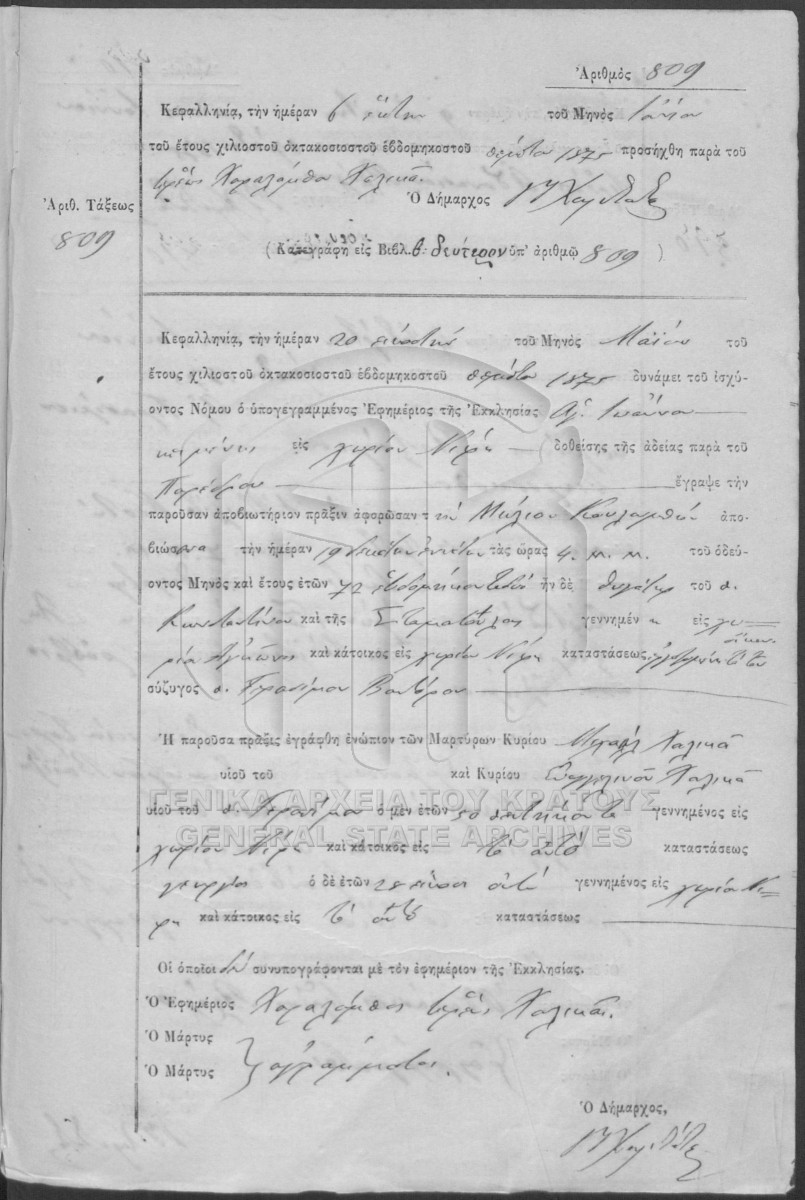 Ἀριθμὸς 809
Κεφαλληνίᾳ, τὴν ἡμέραν 6 ἕκτην τοῦ Μηνὸς
τοῦ ἔτους χιλιοστοῦ ὀκτακοσιοστοῦ ἑβδομηκοστοῦ πέμπτου 1875 προσήχθη παρὰ τοῦ
Ἀριθ. Τάξεως
809
ἱερέως Χαραλάμπου Χαλικιᾶ.
Ὁ Δήμαρχος
( Κατεγράφη εἰς Βιβλ. β δεύτερον ὑπ' ἀριθμῷ 809 )
Κεφαλληνίᾳ, τὴν ἡμέραν 20 εἰκοστὴν τοῦ Μηνὸς Μαΐου τοῦ
ἔτους χιλιοστοῦ ὀκτακοσιοστοῦ ἑβδομηκοστοῦ πέμπτου 1875 δυνάμει τοῦ ἰσχύ-
οντος Νόμου ὁ ὑπογεγραμμένος Ἐφημέριος τῆς Ἐκκλησίας Ἁγ. Ἰωάννου
κειμένης εἰς χωρίον δοθείσης τῆς ἀδείας παρὰ τοῦ
Παρέδρου ἔγραψε τὴν
παροῦσαν ἀποβιωτήριον πρᾶξιν ἀφορῶσαν τ ὴν ἀπο-
βιώσασα τὴν ἡμέραν 19 τὰς ὥρας 4. μ. μ. τοῦ ὁδεύ-
οντος Μηνὸς καὶ ἔτους ἐτῶν 72 ἑβδομήκοντα δύο ἦν δὲ θυγάτηρ τοῦ π.
Κωνσταντίνου καὶ τῆς Σταματούλας γεννημέν η εἰς χω-
ρίον καὶ κάτοικος εἰς χωρίον καταστάσεως
σύζυγος π. Γερασίμου
Ἡ παροῦσα πρᾶξις ἐγράφθη ἐνώπιον τῶν Μαρτύρων Κυρίου Μιχαὴλ Χαλικιᾶ
υἱοῦ τοῦ καὶ Κυρίου Εὐαγγελινοῦ Χαλικιᾶ
ΓΕΝΙΚΑ ΑΡΧΕΙΑ ΤΟΥ ΚΡΑΤΟΥΣ
υἱοῦ τοῦ π. Γερασίμου ὁ μὲν ἐτῶν 50 πεντήκοντα γεννημένος εἰς
GENERAL STATE ARCHIVES
χωρίον καὶ κάτοικος εἰς τὸ αὐτὸ καταστάσεως
γεωργὸς ὁ δὲ ἐτῶν 28 εἴκοσι ὀκτὼ γεννημένος εἰς χωρίον
καὶ κάτοικος εἰς τὸ αὐτὸ καταστάσεως
Οἱ ὁποῖοι δὲν συνυπογράφονται μὲ τὸν ἐφημέριον τῆς Ἐκκλησίας.
Ὁ Ἐφημέριος Χαράλαμπος ἱερεὺς Χαλικιᾶς.
Ὁ Μάρτυς
Ὁ Μάρτυς
ἀγράμματοι.
Ὁ Δήμαρχος,